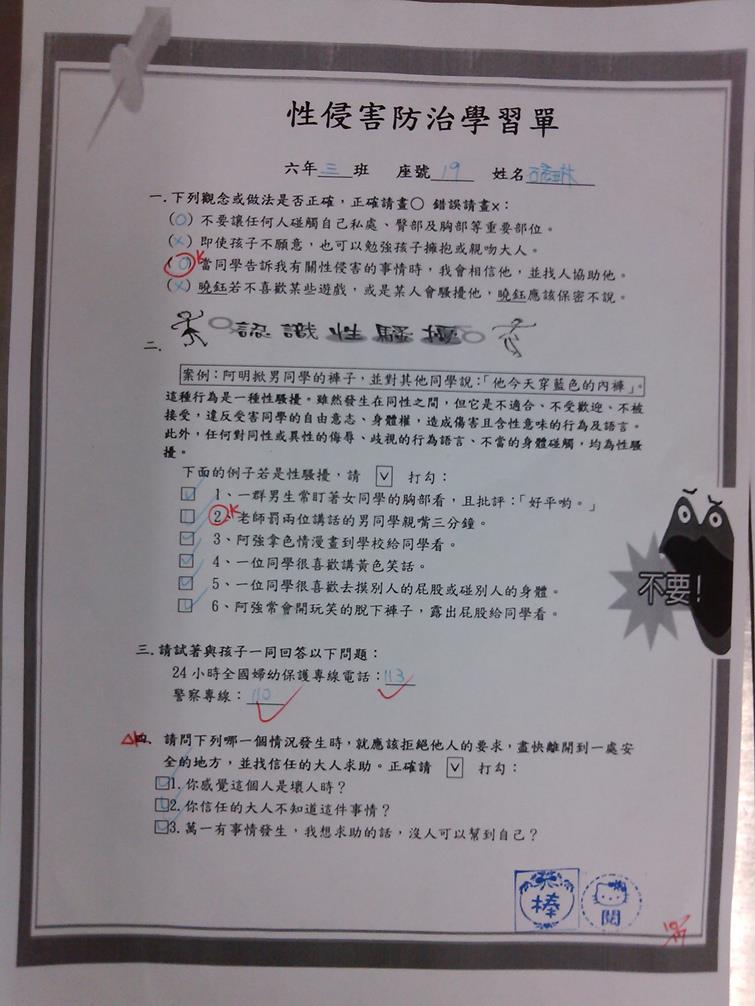 性侵害防治學習單
六年三班 座號19 姓名
一.下列觀念或做法是否正確，正確請畫○ 錯誤請畫×：
(○)不要讓任何人碰觸自己私處、臀部及胸部等重要部位。
(×)即使孩子不願意，也可以勉強孩子擁抱或親吻大人。
(○)當同學告訴我有關性侵害的事情時，我會相信他，並找人協助他。
(×)曉鈺若不喜歡某些遊戲，或是某人會騷擾他，曉鈺應該保密不說。
二. 認識性騷擾
案例：阿明掀男同學的褲子，並對其他同學說：「他今天穿藍色的內褲」。
這種行為是一種性騷擾。雖然發生在同性之間，但它是不適合、不受歡迎、不被
接受，違反受害同學的自由意志、身體權，造成傷害且含性意味的行為及語言。
此外，任何對同性或異性的侮辱、歧視的行為語言、不當的身體碰觸，均為性騷
擾。
下面的例子若是性騷擾，請 ☑ 打勾：
☑ 1、一群男生常盯著女同學的胸部看，且批評：「好平喲。」
☐ 2、老師罰兩位講話的男同學親嘴三分鐘。
☑ 3、阿強拿色情漫畫到學校給同學看。
☑ 4、一位同學很喜歡講黃色笑話。
☑ 5、一位同學很喜歡去摸別人的屁股或碰別人的身體。
☑ 6、阿強常會開玩笑的脫下褲子，露出屁股給同學看。
不要！
三.請試著與孩子一同回答以下問題：
24小時全國婦幼保護專線電話：113
警察專線：110
四、請問下列哪一個情況發生時，就應該拒絕他人的要求，盡快離開到一處安
全的地方，並找信任的大人求助。正確請 ☑ 打勾：
☑1.你感覺這個人是壞人時？
☑2.你信任的大人不知道這件事情？
☑3.萬一有事情發生，我想求助的話，沒人可以幫到自己？
棒
閱